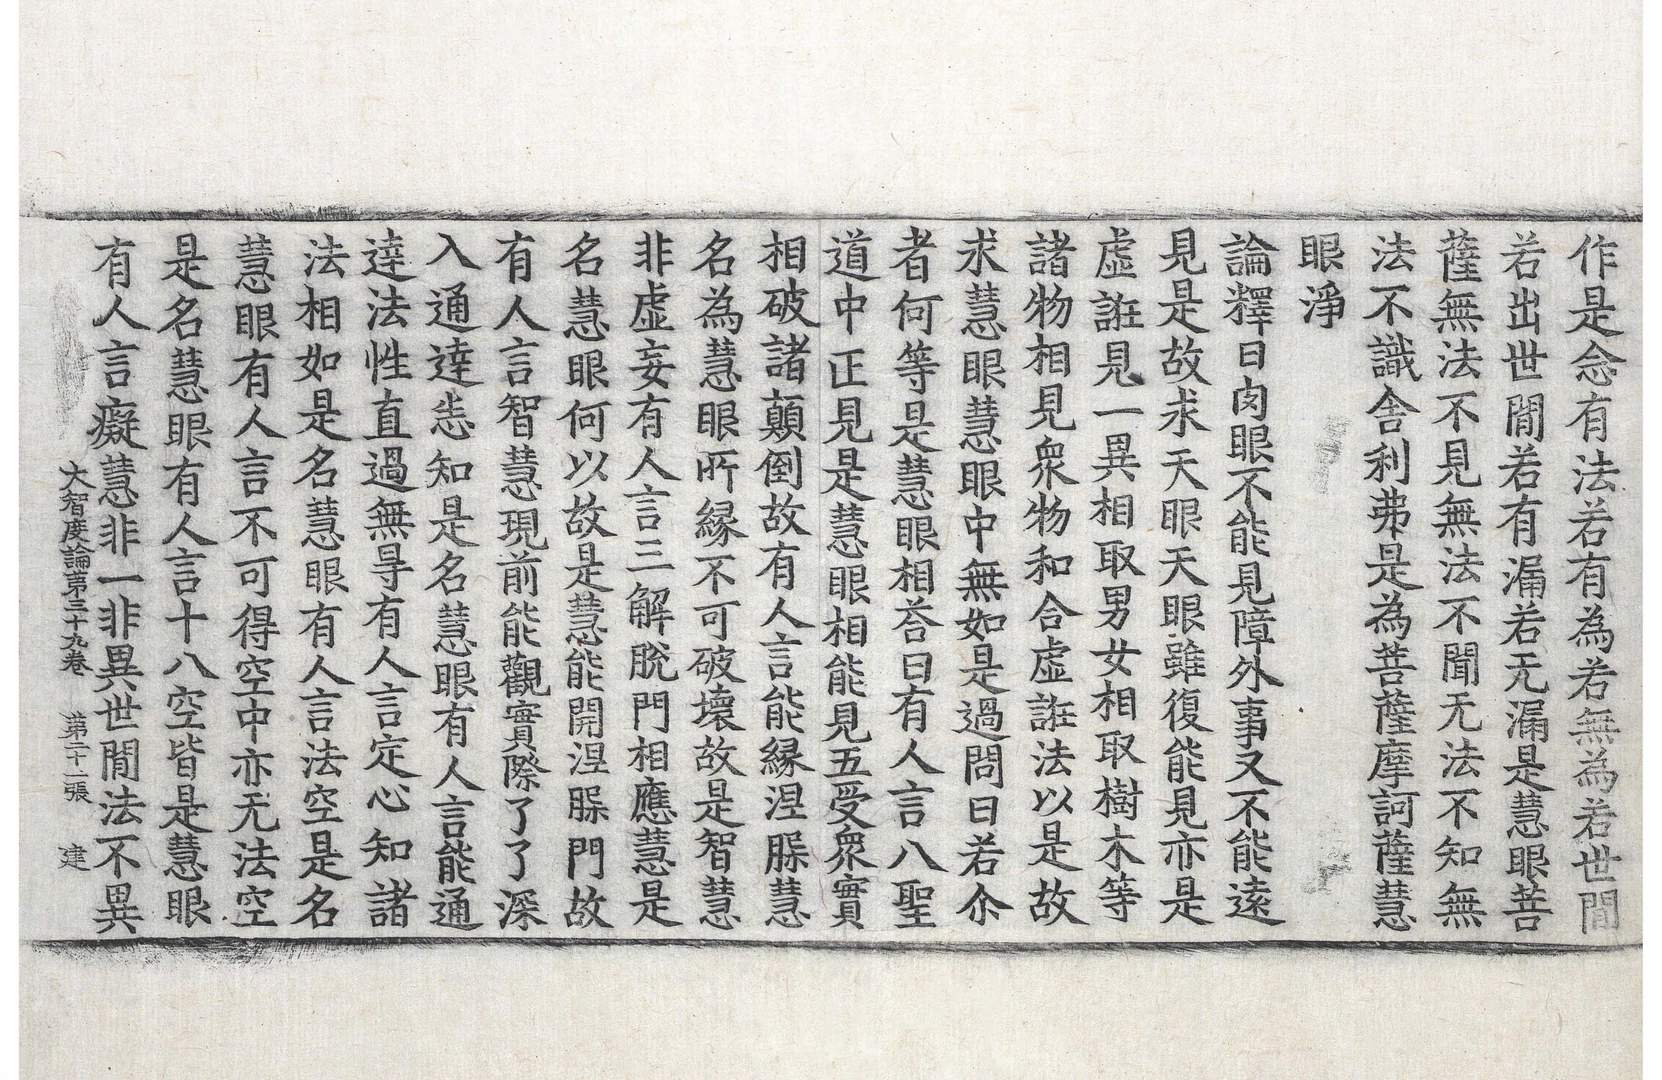 作是念有法若有為若無為若世閒
若出世閒若有漏若无漏是慧眼菩
薩無法不見無法不聞无法不知無
法不識舍利弗是為菩薩摩訶薩慧
眼淨
論釋曰肉眼不能見障外事又不能遠
見是故求天眼天眼雖復能見亦是
虛誑見一異相取男女相取樹木等
諸物相見衆物和合虛誑法以是故
求慧眼慧眼中無如是過問曰若尒
者何等是慧眼相荅曰有人言八聖
道中正見是慧眼相能見五受衆實
相破諸顛倒故有人言能緣涅槃慧
名為慧眼所緣不可破壞故是智慧
非虛妄有人言三解脫門相應慧是
名慧眼何以故是慧能開涅槃門故
有人言智慧現前能觀實際了了深
入通達悉知是名慧眼有人言能通
達法性直過無㝵有人言定心知諸
法相如是名慧眼有人言法空是名
慧眼有人言不可得空中亦无法空
是名慧眼有人言十八空皆是慧眼
有人言癡慧非一非異世閒法不異
大智度論第三十九卷 第二十一張 建